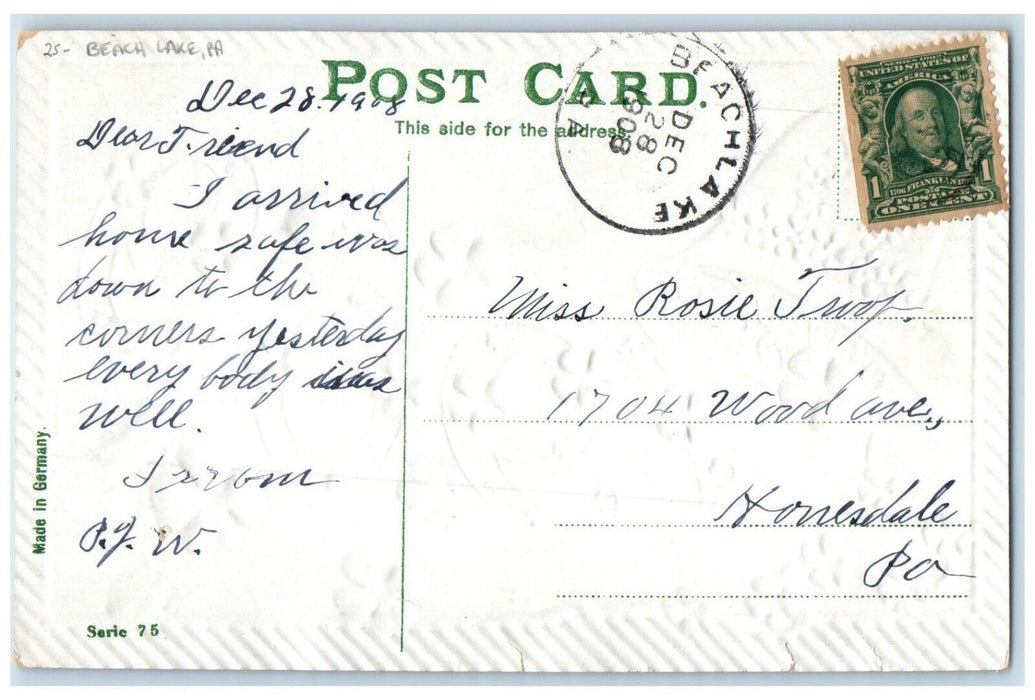 25- BEACH LAKE, PA
POST CARD.
This side for the address.
BEACHLAKE
PA
DEC
28
908
SERIES 1902
UNITED STATES OF
AMERICA
1 1706 FRANKLIN 1790 1
POSTAGE
ONE CENT
Dec 28. 1908
Dear Friend
I arrived
home safe was
down to the
corners yesterday
every body was
well.
From
P.J. W.
Miss Rosie Troop.
1704 Wood ave.,
Honesdale
Pa
Made in Germany.
Serie 75